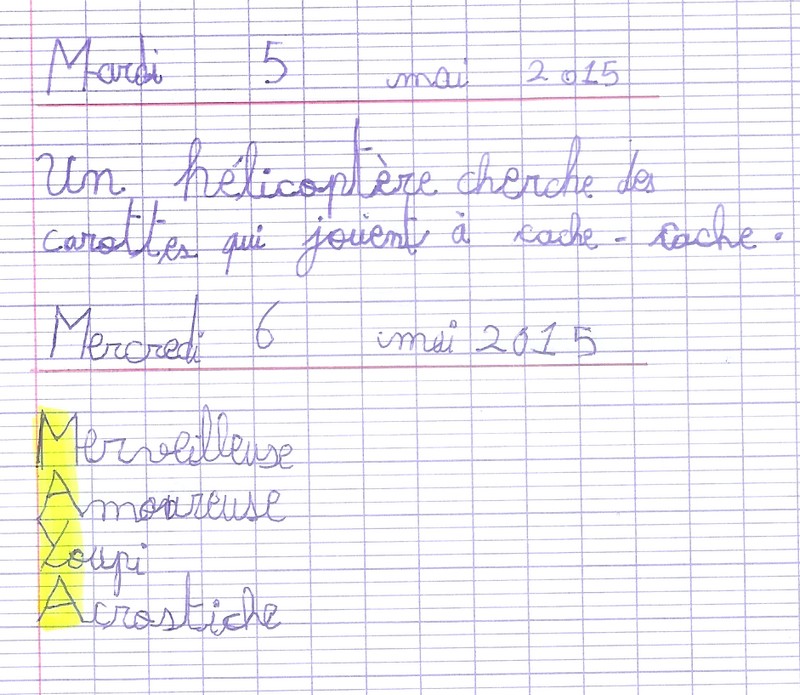 Mardi 5 mai 2015
Un hélicoptère cherche des
carottes qui jouent à cache-cache.
Mercredi 6 mai 2015
Merveilleuse
Amoureuse
Youpi
Acrostiche